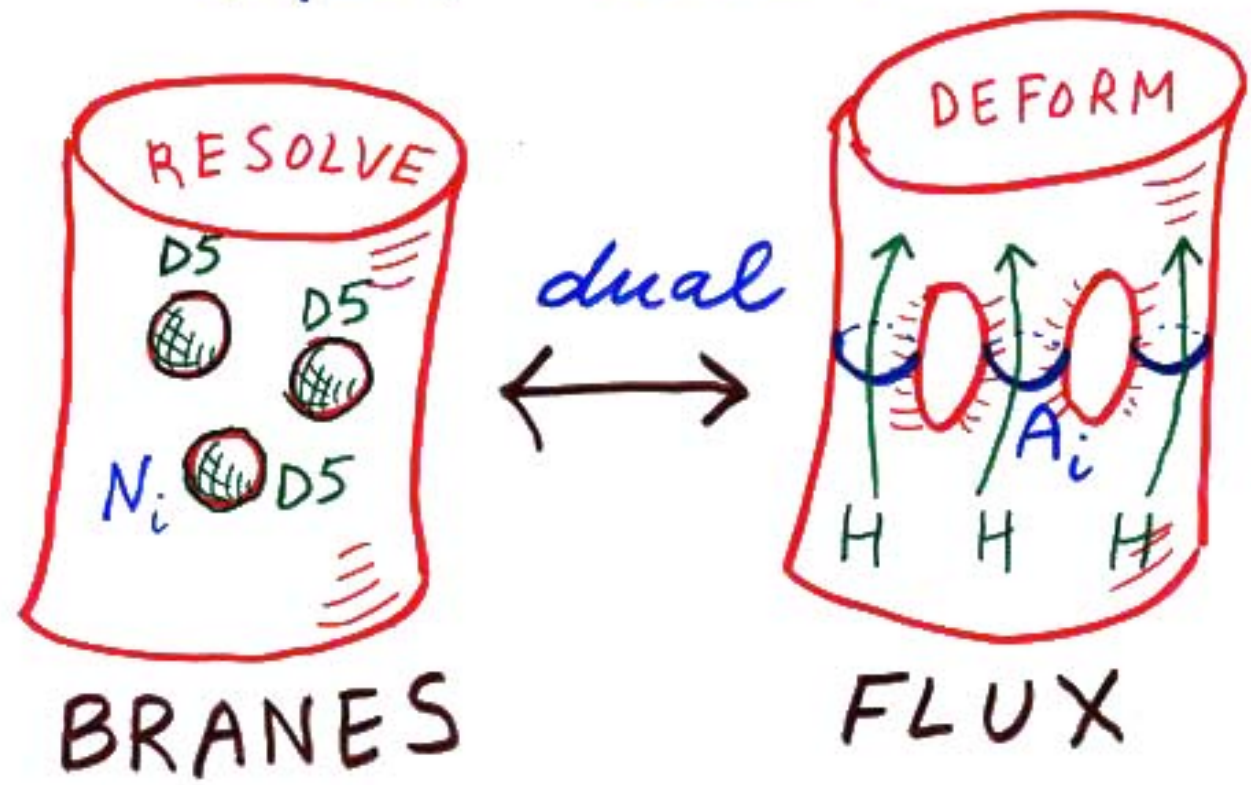 RESOLVE
D5
D5
N_i D5
BRANES
dual
DEFORM
A_i
H H H
FLUX